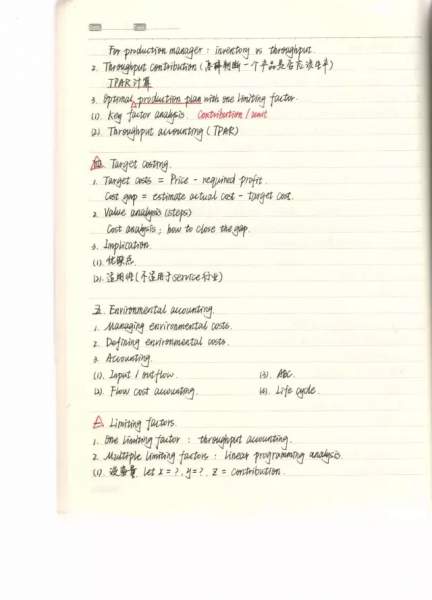 For production manager : inventory vs throughput.
2. Throughput contribution (怎样判断一个产品是否应该生产)
TPAR计算
3. Optimal production plan with one limiting factor.
(1). Key factor analysis. Contribution / unit
(2). Throughput accounting (TPAR)
四. Target costing.
1. Target costs = Price - required profit.
Cost gap = estimate actual cost - target cost.
2. Value analysis (steps)
Cost analysis ; how to close the gap.
3. Implication.
(1). 优缺点.
(2). 适用性(不适用于service行业)
五. Environmental accounting.
1. Managing environmental costs.
2. Defining environmental costs.
3. Accounting.
(1). Input / outflow. (3). ABC.
(2). Flow cost accounting. (4). Life cycle.
Limiting factors.
1. One limiting factor : throughput accounting.
2. Multiple limiting factors : linear programming analysis.
(1). 设变量. let x = ?, y = ?. z = contribution.